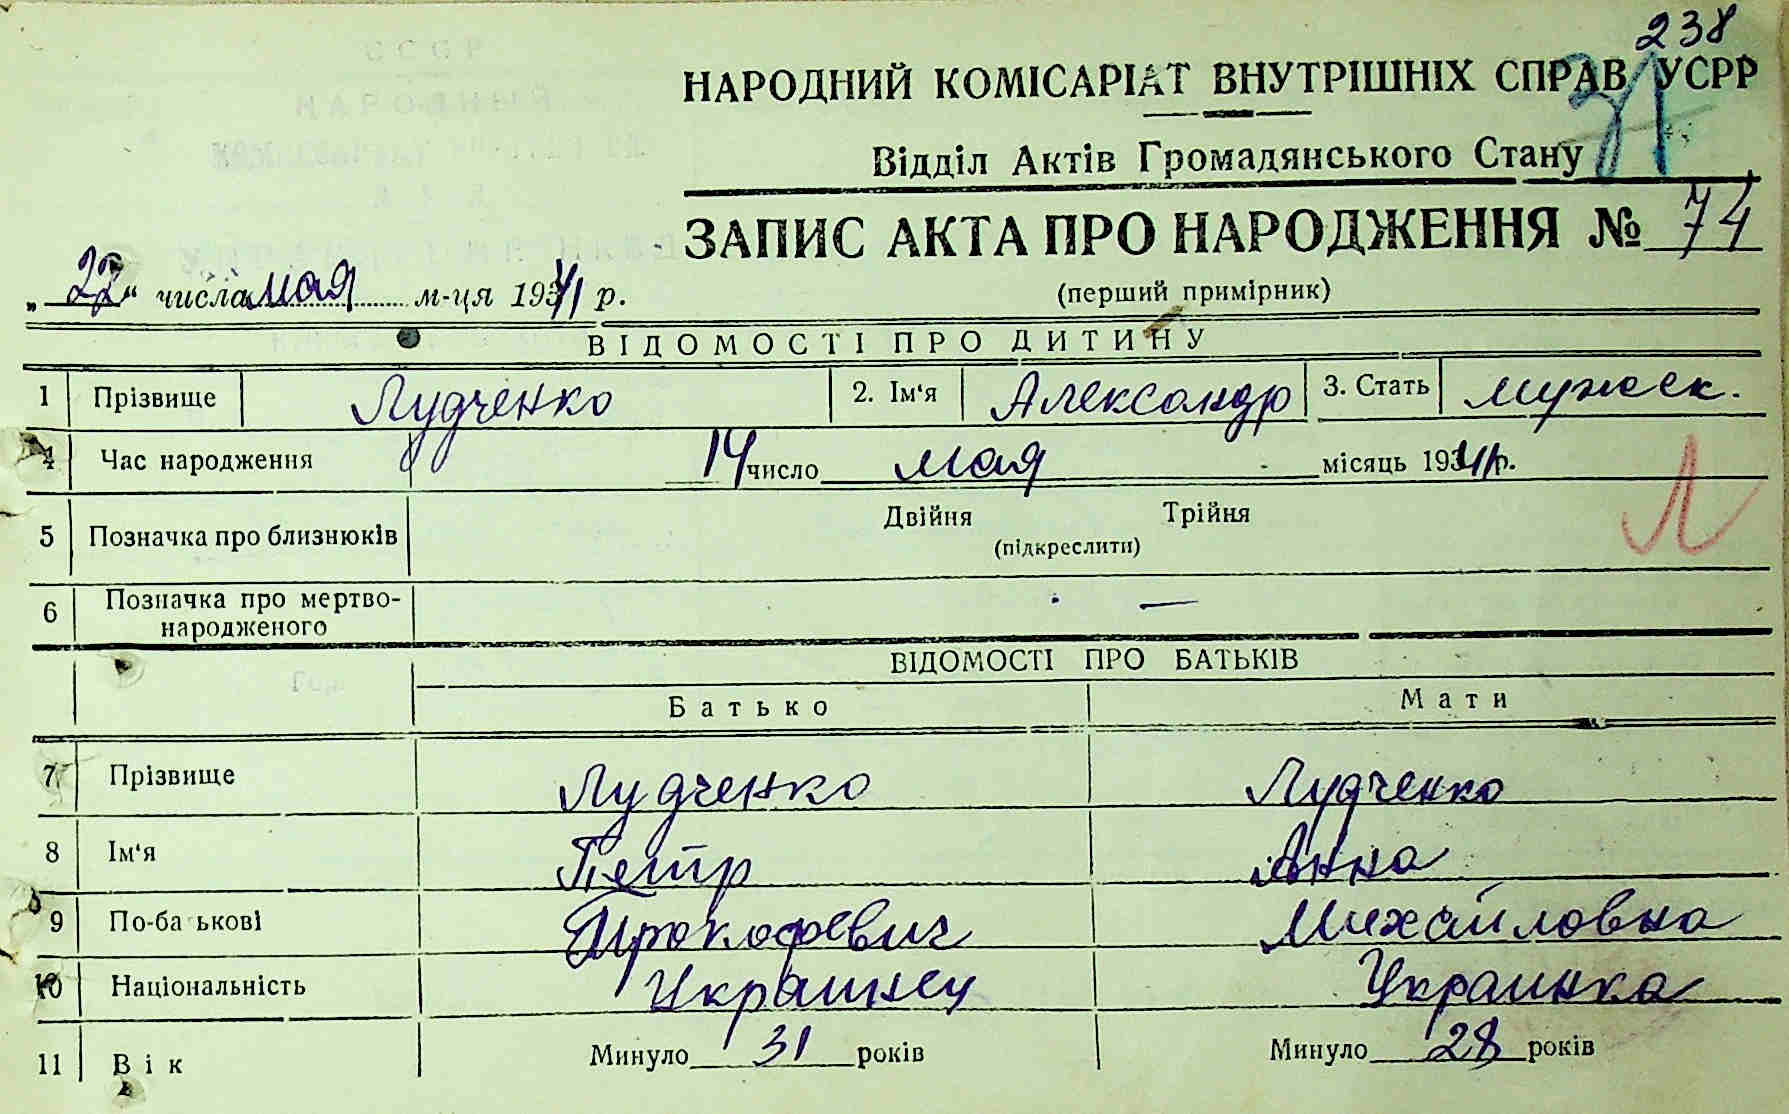 238
НАРОДНИЙ КОМІСАРІАТ ВНУТРІШНІХ СПРАВ УСРР
31
Відділ Актів Громадянського Стану
ЗАПИС АКТА ПРО НАРОДЖЕННЯ № 74
„22“ числа мая м-ця 1941 р.
(перший примірник)
ВІДОМОСТІ ПРО ДИТИНУ
1 Прізвище Лудченко 2. Ім‘я Александр 3. Стать мужск.
4 Час народження 14 число мая місяць 1941 р.
Л
5 Позначка про близнюків Двійня Трійня
(підкреслити)
6 Позначка про мертво-
народженого —
ВІДОМОСТІ ПРО БАТЬКІВ
Батько Мати
7 Прізвище Лудченко Лудченко
8 Ім‘я Петр Анна
9 По-батькові Прокофевич Михайловна
10 Національність Украинец Украинка
11 Вік Минуло 31 років Минуло 28 років